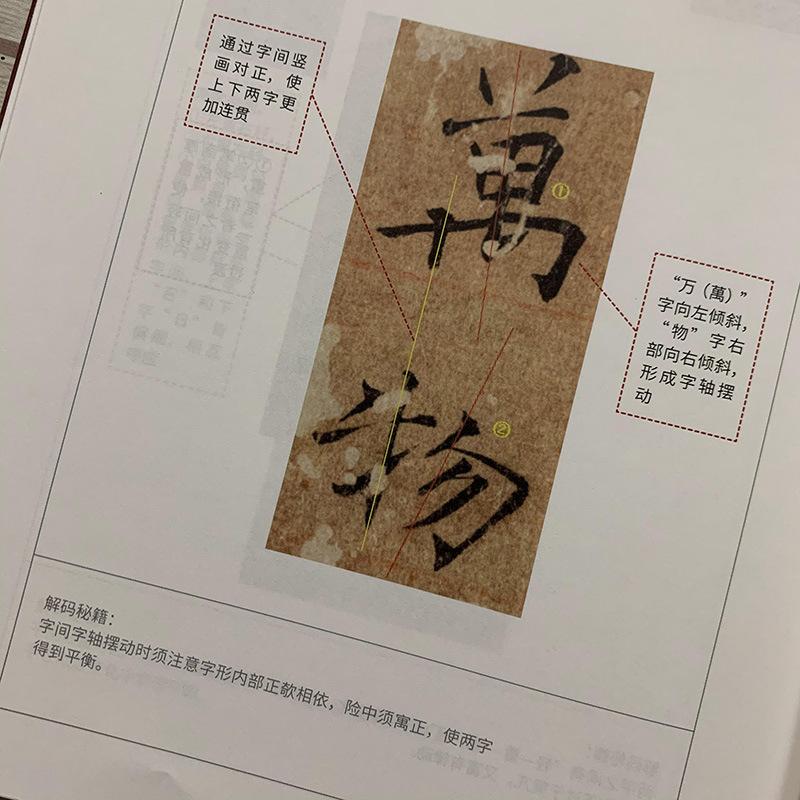 通过字间竖
画对正，使
上下两字更
加连贯
萬
①
物
②
“万（萬）”
字向左倾斜，
“物”字右
部向右倾斜，
形成字轴摆
动
解码秘籍：
字间字轴摆动时须注意字形内部正欹相依，险中须寓正，使两字
得到平衡。